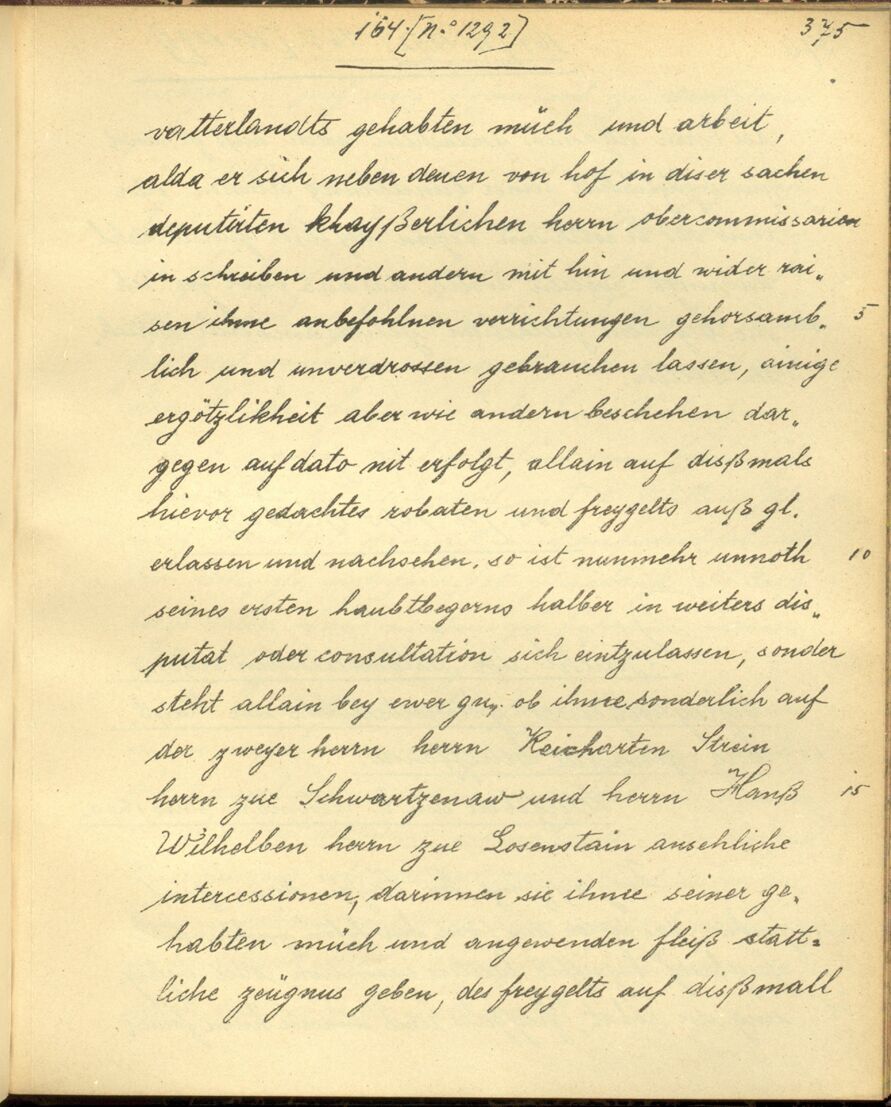 164. [N.o 1292]
375
vatterlandts gehabten müeh und arbeit,
alda er sich neben denen von hof in diser sachen
deputirten khayßerlichen herrn obercommissarien
in schreiben und andern mit hin und wider rai„
sen ihme anbefohlnen verrichtungen gehorsamb„ 5
lich und unverdrossen gebrauchen lassen, ainige
ergötzlikheit aber wie andern beschehen dar„
gegen auf dato nit erfolgt, allain auf dißmals
hievor gedachtes robaten und freygelts auß gl.
erlassen und nachsehen. so ist nunmehr unnoth 10
seines ersten haubtbegerns halber in weiters dis„
putat oder consultation sich eintzulassen, sonder
steht allain bey ewer gn. ob ihme sonderlich auf
der zweyer herrn herrn Reicharten Strein
herrn zue Schwartzenaw und herrn Hanß 15
Wilhelben herrn zue Losenstain ansehliche
intercessionen, darinnen sie ihme seiner ge„
habten müeh und angewenden fleiß statt=
liche zeügnus geben, des freygelts auf dißmall